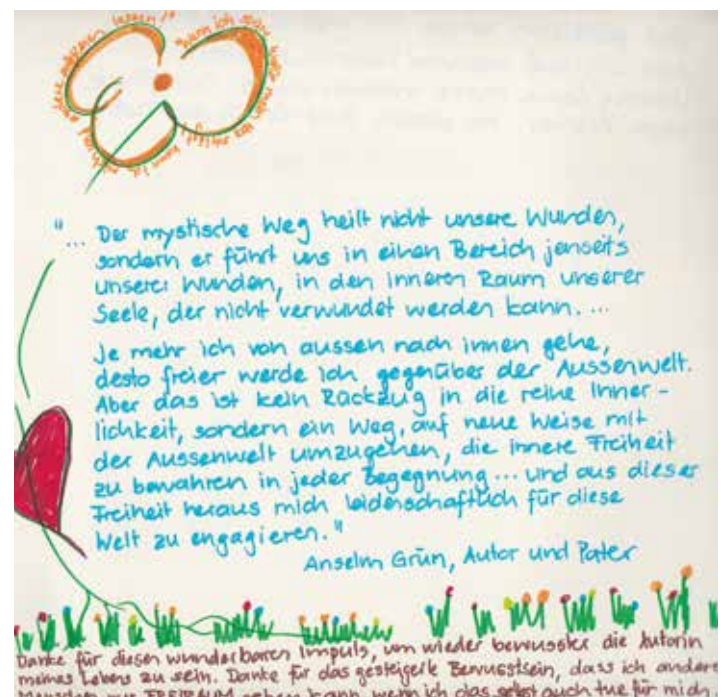 "... Der mystische Weg heilt nicht unsere Wunden,
sondern er führt uns in einen Bereich jenseits
unserer Wunden, in den inneren Raum unserer
Seele, der nicht verwundet werden kann. ...
Je mehr ich von aussen nach innen gehe,
desto freier werde ich gegenüber der Aussenwelt.
Aber das ist kein Rückzug in die reine Inner-
lichkeit, sondern ein Weg, auf neue Weise mit
der Aussenwelt umzugehen, die innere Freiheit
zu bewahren in jeder Begegnung... und aus dieser
Freiheit heraus mich leidenschaftlich für diese
Welt zu engagieren."
Anselm Grün, Autor und Pater
Danke für diesen wunderbaren Impuls, um wieder bewusster die Autorin
meines Lebens zu sein. Danke für das gesteigerte Bewusstsein, dass ich andere
Menschen nur FREIRAUM geben kann, wenn ich das selbst auch tue für mich